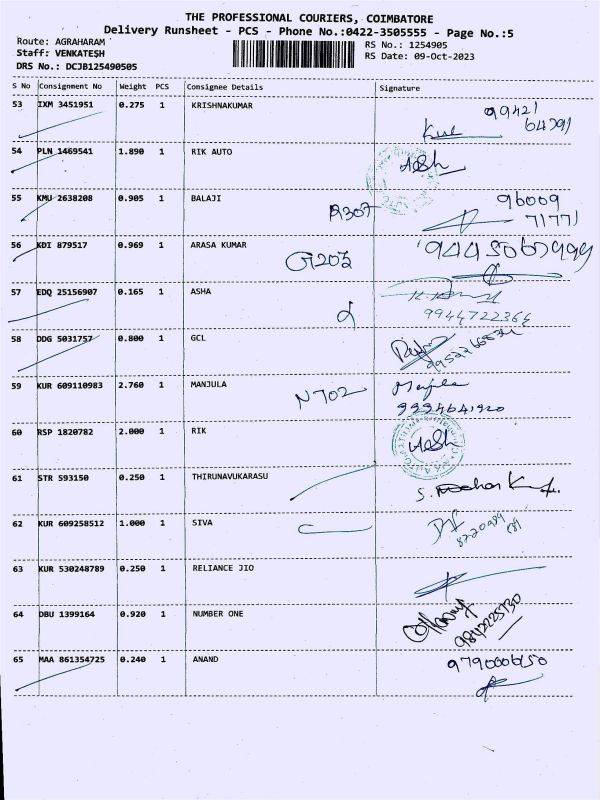 THE PROFESSIONAL COURIERS, COIMBATORE
Delivery Runsheet - PCS - Phone No.:0422-3505555 - Page No.:5
Route: AGRAHARAM
RS No.: 1254905
Staff: VENKATESH
RS Date: 09-Oct-2023
DRS No.: DCJB125490505
S No Consignment No Weight PCS Consignee Details Signature
53 IXM 3451951 0.275 1 KRISHNAKUMAR
99421
64791
54 PLN 1469541 1.890 1 RIK AUTO
55 KMU 2638208 0.905 1 BALAJI
A307
96009
71771
56 KDI 879517 0.969 1 ARASA KUMAR
G203
57 EDQ 25156907 0.165 1 ASHA
9944722364
58 DDG 5031757 0.800 1 GCL
59 KUR 609110983 2.760 1 MANJULA
N702
9994641920
60 RSP 1820782 2.000 1 RIK
61 STR 593150 0.250 1 THIRUNAVUKARASU
62 KUR 609258512 1.000 1 SIVA
63 KUR 530248789 0.250 1 RELIANCE JIO
64 DBU 1399164 0.920 1 NUMBER ONE
9842225730
65 MAA 861354725 0.240 1 ANAND
9790006150